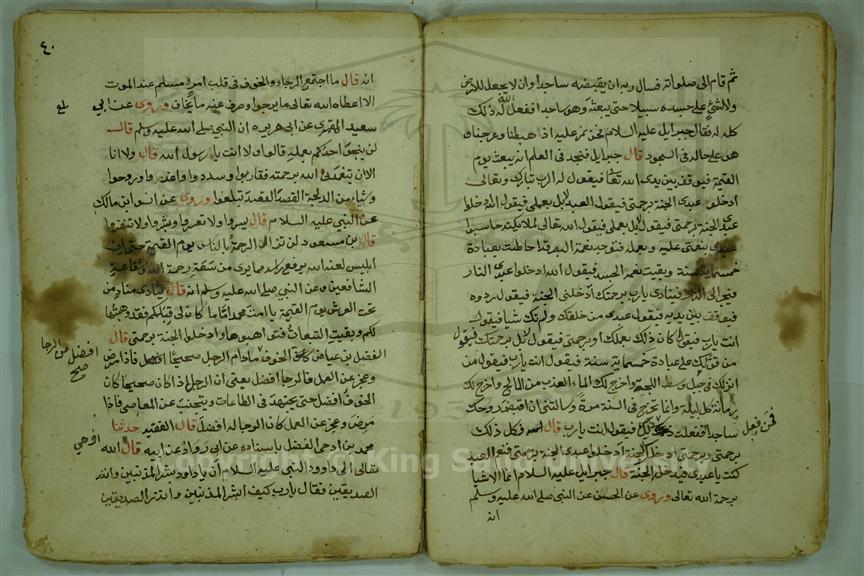 ثم قام الى صلواته فسال ربه ان يقبضه ساجدا وان لا يجعل للارض
ولا لشئ على جسده سبيلا حتى يبعثه وهو ساجد ففعل الله له ذلك
كله له فقال جبرايل عليه السلام نحن نمر عليه اذا هبطنا وعرجنا
هو على حاله فى السجود قال جبرايل فنجد فى العلم انه يبعث يوم
القيمة فيوقف بين يدى الله تعا فيقول له الرب تبارك وتعالى
ادخلوا عبدى الجنة برحمتى فيقول العبد بل بعملى فيقول الله ادخلوا
عبدى الجنة برحمتى فيقول بل بعملى فيقول الله تعالى لملايكته حاسبوا
عبدى بنعمتى عليه وبعمله فتوجد نعمة البصر قد احاطت بعبادة
خمسماية سنة وبقيت نعم الجسد فيقول الله ادخلوا عبدى النار
فيجر الى النار فينادى يارب برحمتك ادخلنى الجنة فيقول ردوه
فيوقف بين يديه فيقول عبدى من خلقك ولم تك شيا فيقول
انت يارب فيقول كان ذلك بعملك او برحمتى فيقول بل برحمتك فيقول
من قواك على عبادة خمسماية سنة فيقول انت يارب فيقول من
انزلك فى جبل وسط اللجة واخرج لك الماء العذب من المالح واخرج لك
رمانة كل ليلة وانما تخرج فى السنة مرة وسالتنى ان اقبض روحك
ساجدا ففعلت ذلك فيقول انت يارب قال فكل ذلك
فمن فعل
برحمتى وبرحمتى ادخل الجنة ادخلوا عبدى الجنة برحمتى فنعم العبد
كنت يا عبدى فيدخل الجنة قال جبرايل عليه السلام انما الاشيا
برحمة الله تعالى وروى عن الحسن عن النبى صلى الله عليه وسلم
انه
٤٠
انه قال ما اجتمع الرجاء والخوف فى قلب امرء مسلم عند الموت
الا اعطاه الله تعالى ما يرجوا وصرف عنه ما يخاف وروى عن ابى
سعيد المقبرى عن ابى هريره ان النبى صلى الله عليه وسلم قال
لن ينجى احدكم بعمله قالوا ولا انت يا رسول الله قال ولا انا
الا ان يتغمدنى الله برحمته فقاربوا وسددوا واغدوا وروحوا
وشئا من الدلجة القصد القصد تبلغوا وروى عن انس ابن مالك
عن النبى عليه السلام قال يسروا ولا تعسروا وبشروا ولا تنفروا
قال بن مسعود لن تزال الرحمة بالناس يوم القيمة حتى ان
ابليس لعنه الله يرفع راسه مما يرى من سعة رحمة الله وشفاعة
الشافعين وعن النبى صلى الله عليه وسلم انه قال ينادى مناد من
تحت العرش يوم القيمة يا امة محمد اما ما كان لى قبلكم فقد وهبتها
لكم وبقيت التبعات فتواهبوها وادخلوا الجنة برحمتى قال
الفضل بن عياض الخوف ما دام الرجل صحيحا افضل فاذا مرض
افضل من الرجا
صح
وعجز عن العمل فالرجا افضل يعنى ان الرجل اذا كان صحيحا كان
الخوف افضل حتى يجتهد فى الطاعات ويتجنب عن المعاصى فاذا
مرض وعجز عن العمل كان الرجا له افضل قال الفقيه حدثنا
محمد بن ادحم الفضل باسناده عن ابى رواد عن ابيه قال الله
اوحى
تعالى الى داوود النبى عليه السلام ان يا داود بشر المذنبين وانذر
الصديقين فقال يارب كيف ابشر المذنبين وانذر الصديقين